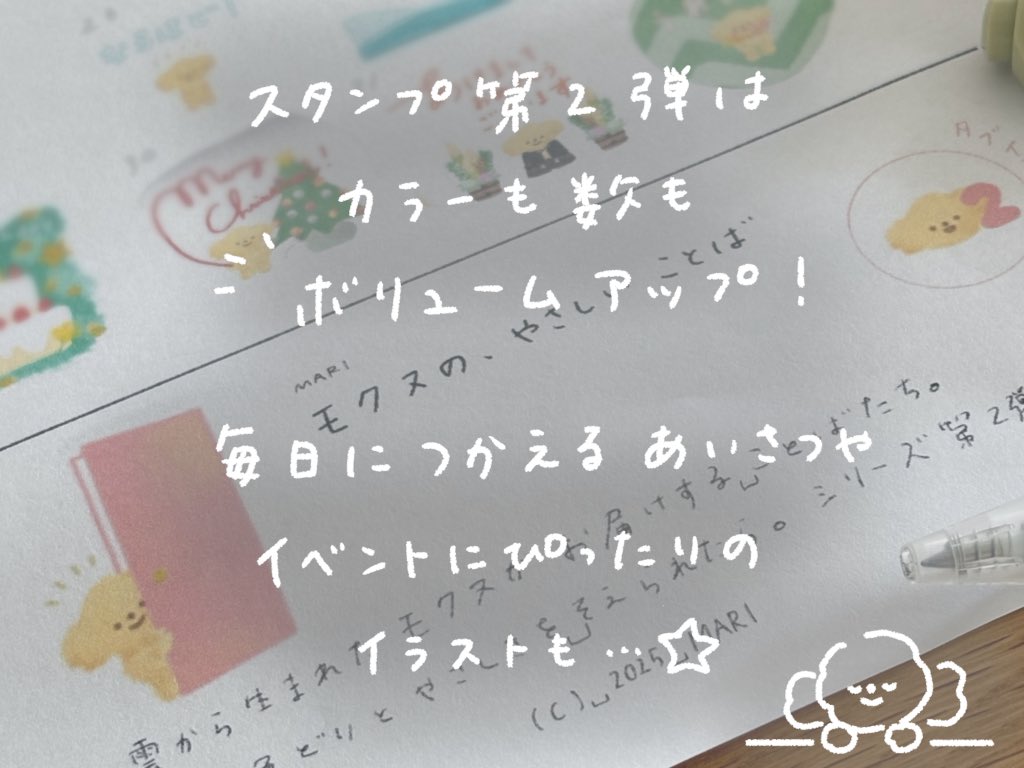 スタンプ第2弾は
カラーも数も
ボリュームアップ!
毎日につかえるあいさつや
イベントにぴったりの
イラストも…☆
Merry
MARI
モクスの、やさしいことば
雲から生まれたモクスがお届けする␣ことばたち。
やさしさを␣そえられたら。シリーズ第2弾
(C)␣2025␣MARI